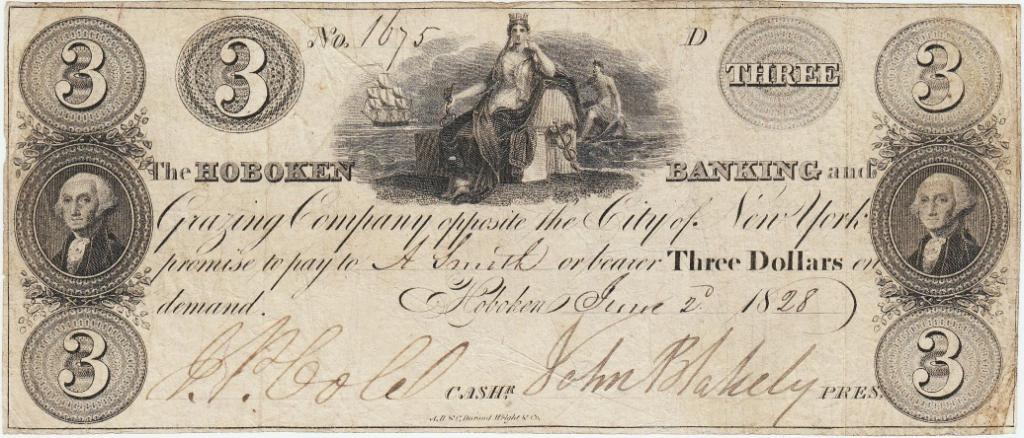 3 3 No. 1675 D THREE 3
The HOBOKEN BANKING and
Grazing Company opposite the City of New York
promise to pay to A Smith or bearer Three Dollars on
demand. Hoboken June 2d 1828
3 J. P. Cole CASHR. John Blakely PRES. 3
A.B. & C. Durand Wright & Co.